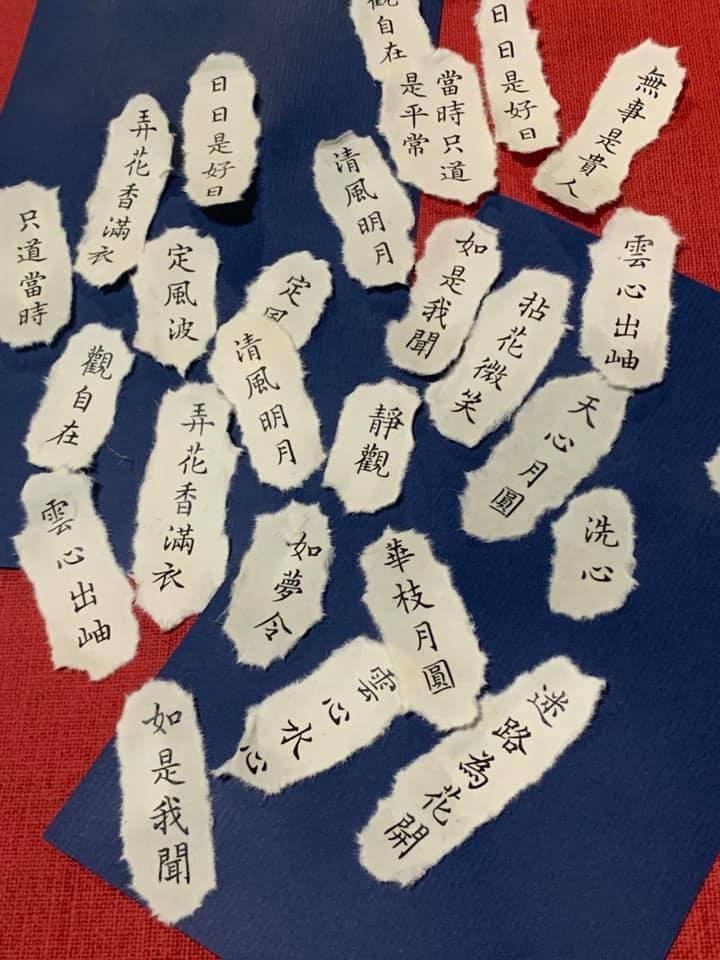 觀自在
日日是好日
當時只道
是平常
無事是貴人
日日是好日
弄花香滿衣
清風明月
只道當時
定風波
定風
如是我聞
拈花微笑
雲心出岫
觀自在
清風明月
靜觀
天心月圓
弄花香滿衣
雲心出岫
如夢令
華枝月圓
洗心
雲心水心
迷路為花開
如是我聞